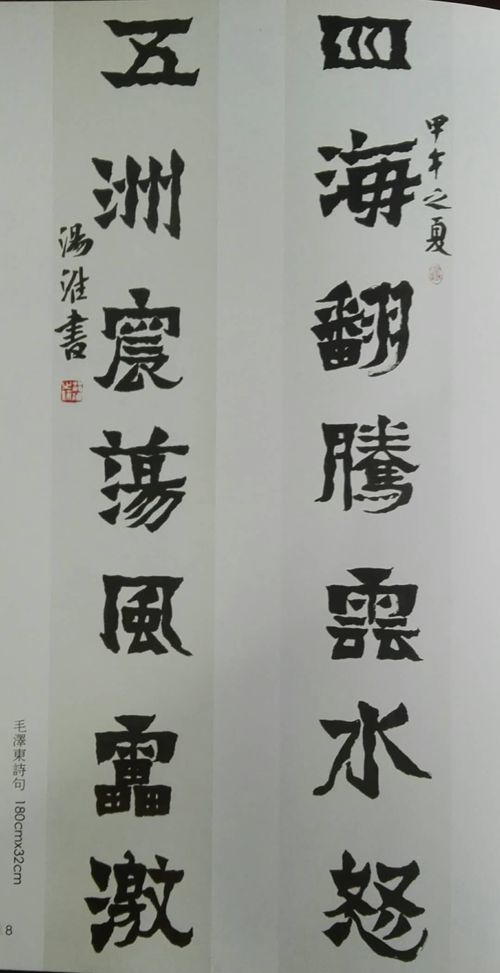 甲午之夏
四海翻騰雲水怒
五洲宸蕩風靁激
湯淮書
毛澤東詩句 180cmx32cm
8